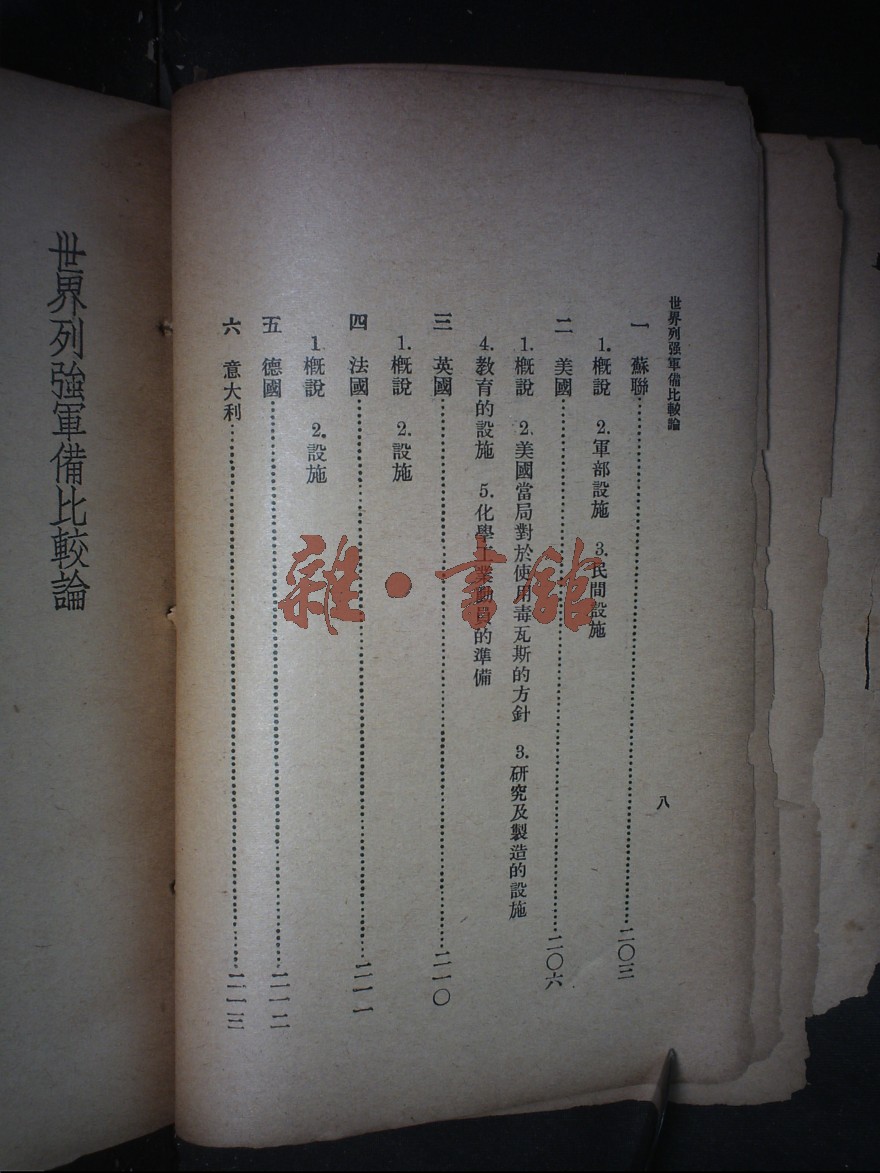 世界列强軍備比較論
八
一 蘇聯……二〇三
1.概說 2.軍部設施 3.民間設施
二 美國……二〇六
1.概說 2.美國當局對於使用毒瓦斯的方針 3.研究及製造的設施
4.教育的設施 5.化學工業動員的準備
三 英國……二一〇
1.概說 2.設施
四 法國……二一一
1.概說 2.設施
五 德國……二一二
六 意大利……二一三
世界列強軍備比較論
雜·書館